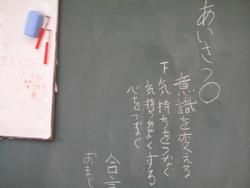 あいさつ〇
意識を変える
下気持ちをつなぐ
気持ちよくする
心をつなぐ
合言
おまじ